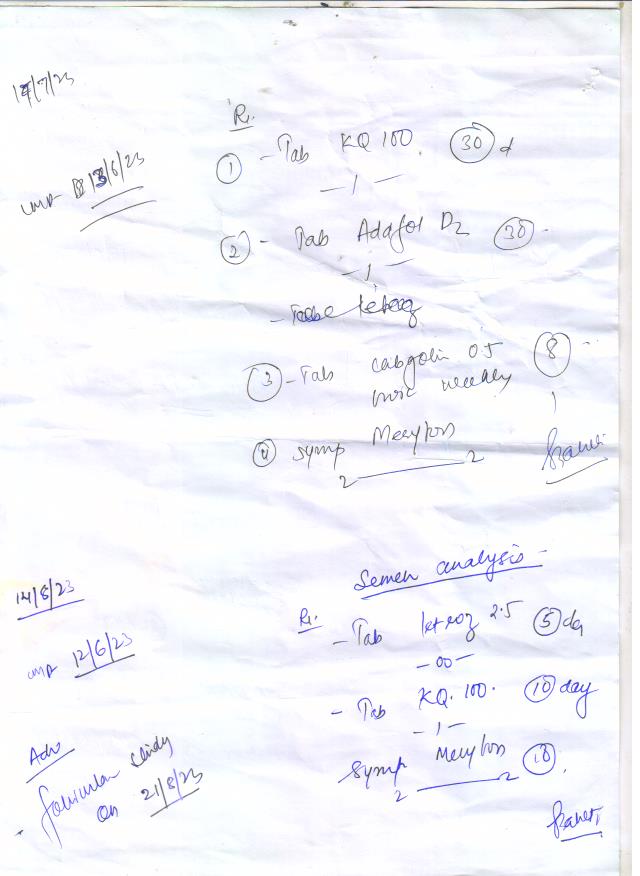 17/7/23
LMP 13/6/23
Rx.
① - Tab KQ 100. 30 d
— 1 —
② - Tab Adafol D2 30 -
— 1 —
③ - Tab cabgolin 0.5 8
weekly
④ syrup
2 ——— 2
14/8/23
LMP 12/6/23
Adv
follicular study
on 21/8/23
Semen analysis -
Rx.
- Tab letroz 2.5 5 da
- 00 -
- Tab KQ. 100. 10 day
- 1 -
syrup 10.
2 ——— 2